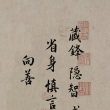 藏鋒隱智
省身慎言
向善